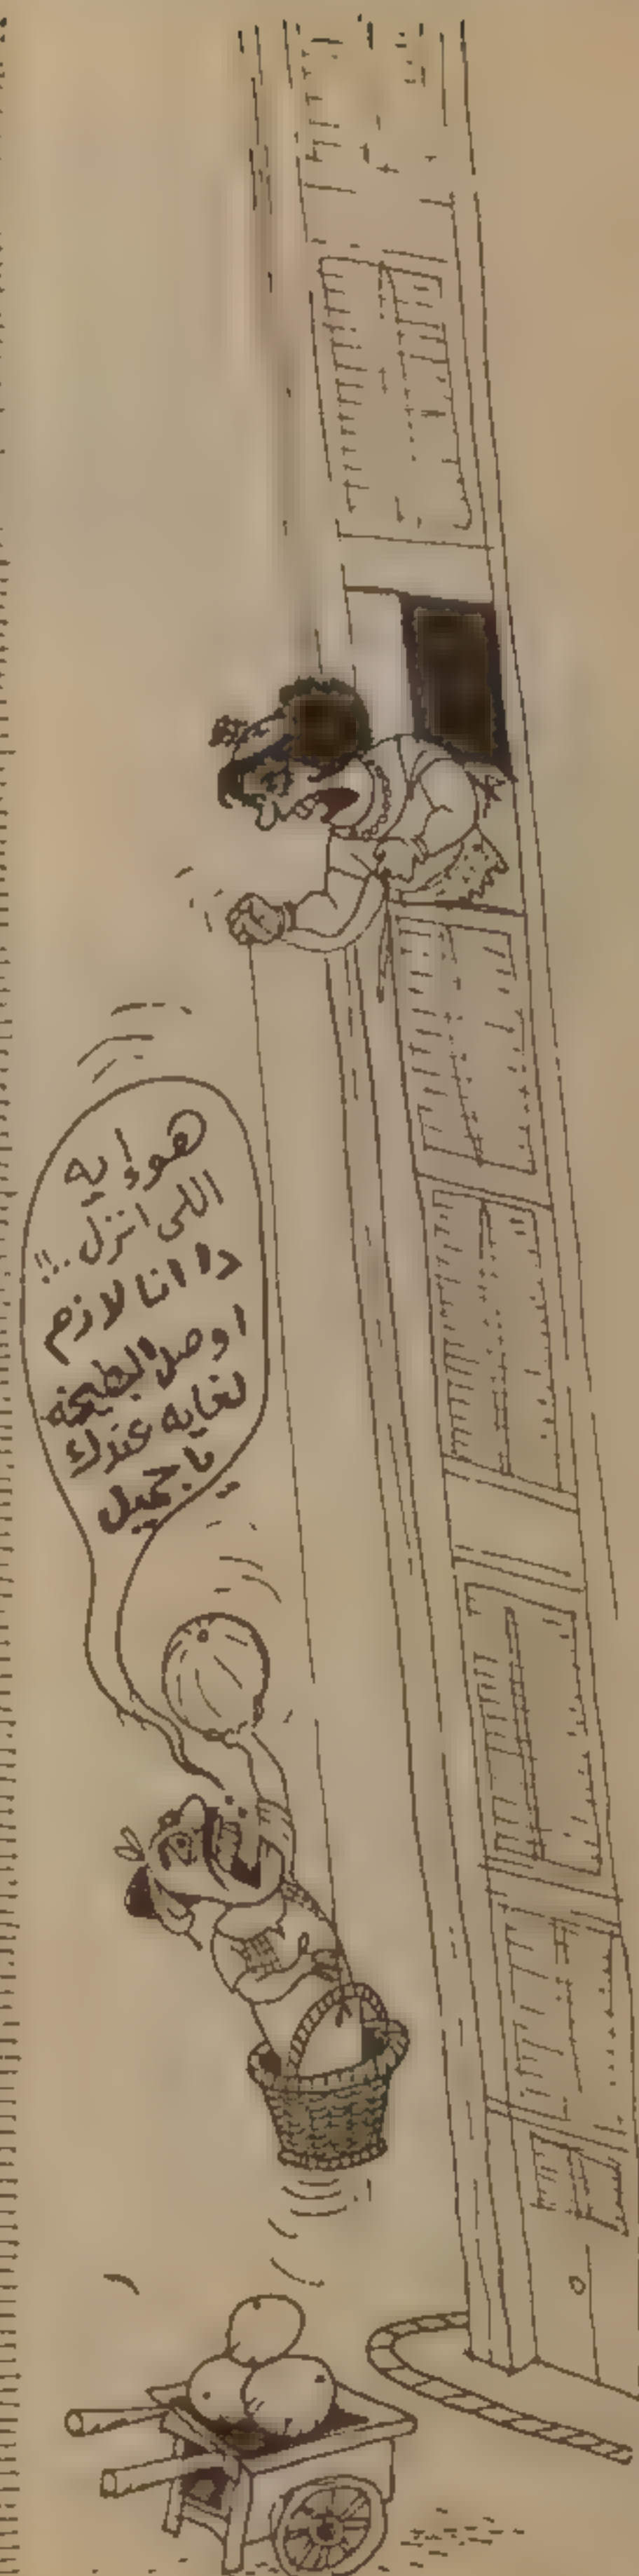 هو إيه
اللى انزل..!!
دا انا لازم
اوصل البطيخه
لغايه عندك
يا جميل